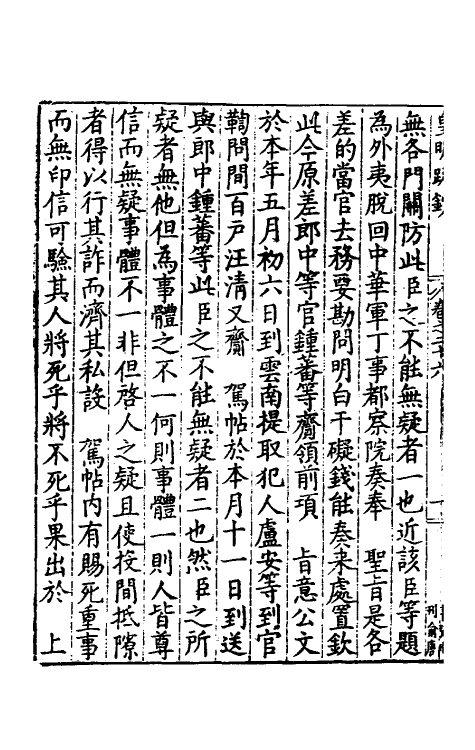 皇明疏鈔
卷之六
無各門關防此臣之不能無疑者一也近該臣等題
為外夷脫回中華軍丁事都察院奏奉　聖旨是各
差的當官去務要勘問明白干礙錢能奏来處置欽
此今原差郎中等官鍾蕃等齎領前項　旨意公文
於本年五月初六日到雲南提取犯人盧安等到官
鞫問間百戶汪清又齎　駕帖於本月十一日到送
與郎中鍾蕃等此臣之不能無疑者二也然臣之所
疑者無他但為事體之不一何則事體一則人皆尊
信而無疑事體不一非但啓人之疑且使投間抵隙
者得以行其詐而濟其私設　駕帖内有賜死重事
而無印信可驗其人將死乎將不死乎果出於　上